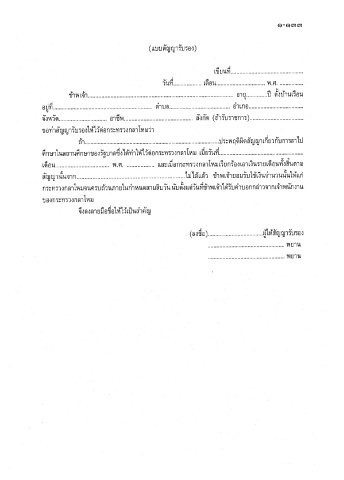 ๑-๑๓๓
(แบบสัญญารับรอง)
เขียนที่........................................
วันที่............... เดือน........................... พ.ศ. ................
ข้าพเจ้า.................................................................. อายุ............ปี ตั้งบ้านเรือน
อยู่ที่............................................. ตำบล............................ อำเภอ............................
จังหวัด........................ อาชีพ.............................. สังกัด (ถ้ารับราชการ)............................
ขอทำสัญญารับรองให้ไว้ต่อกระทรวงกลาโหมว่า
ถ้า......................................................................ประพฤติผิดสัญญาเกี่ยวกับการลาไป
ศึกษาในสถานศึกษาของรัฐบาลซึ่งได้ทำให้ไว้ต่อกระทรวงกลาโหม เมื่อวันที่........................................
เดือน.......................... พ.ศ. ................ และเมื่อกระทรวงกลาโหมเรียกร้องเอาเงินรายเดือนทั้งสิ้นตาม
สัญญานั้นจาก.......................................................ไม่ได้แล้ว ข้าพเจ้ายอมรับใช้เงินจำนวนนั้นให้แก่
กระทรวงกลาโหมจนครบถ้วนภายในกำหนดสามสิบวัน นับตั้งแต่วันที่ข้าพเจ้าได้รับคำบอกกล่าวจากเจ้าพนักงาน
ของกระทรวงกลาโหม
จึงลงลายมือชื่อให้ไว้เป็นสำคัญ
(ลงชื่อ)..............................ผู้ให้สัญญารับรอง
........................................ พยาน
........................................ พยาน